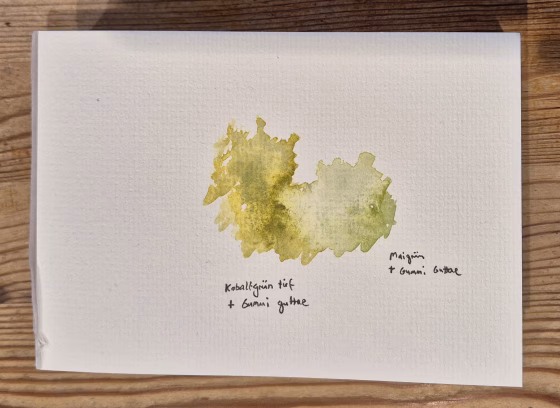 Kobaltgrün tief
+ Gummi guttae
Maigrün
+ Gummi Guttae